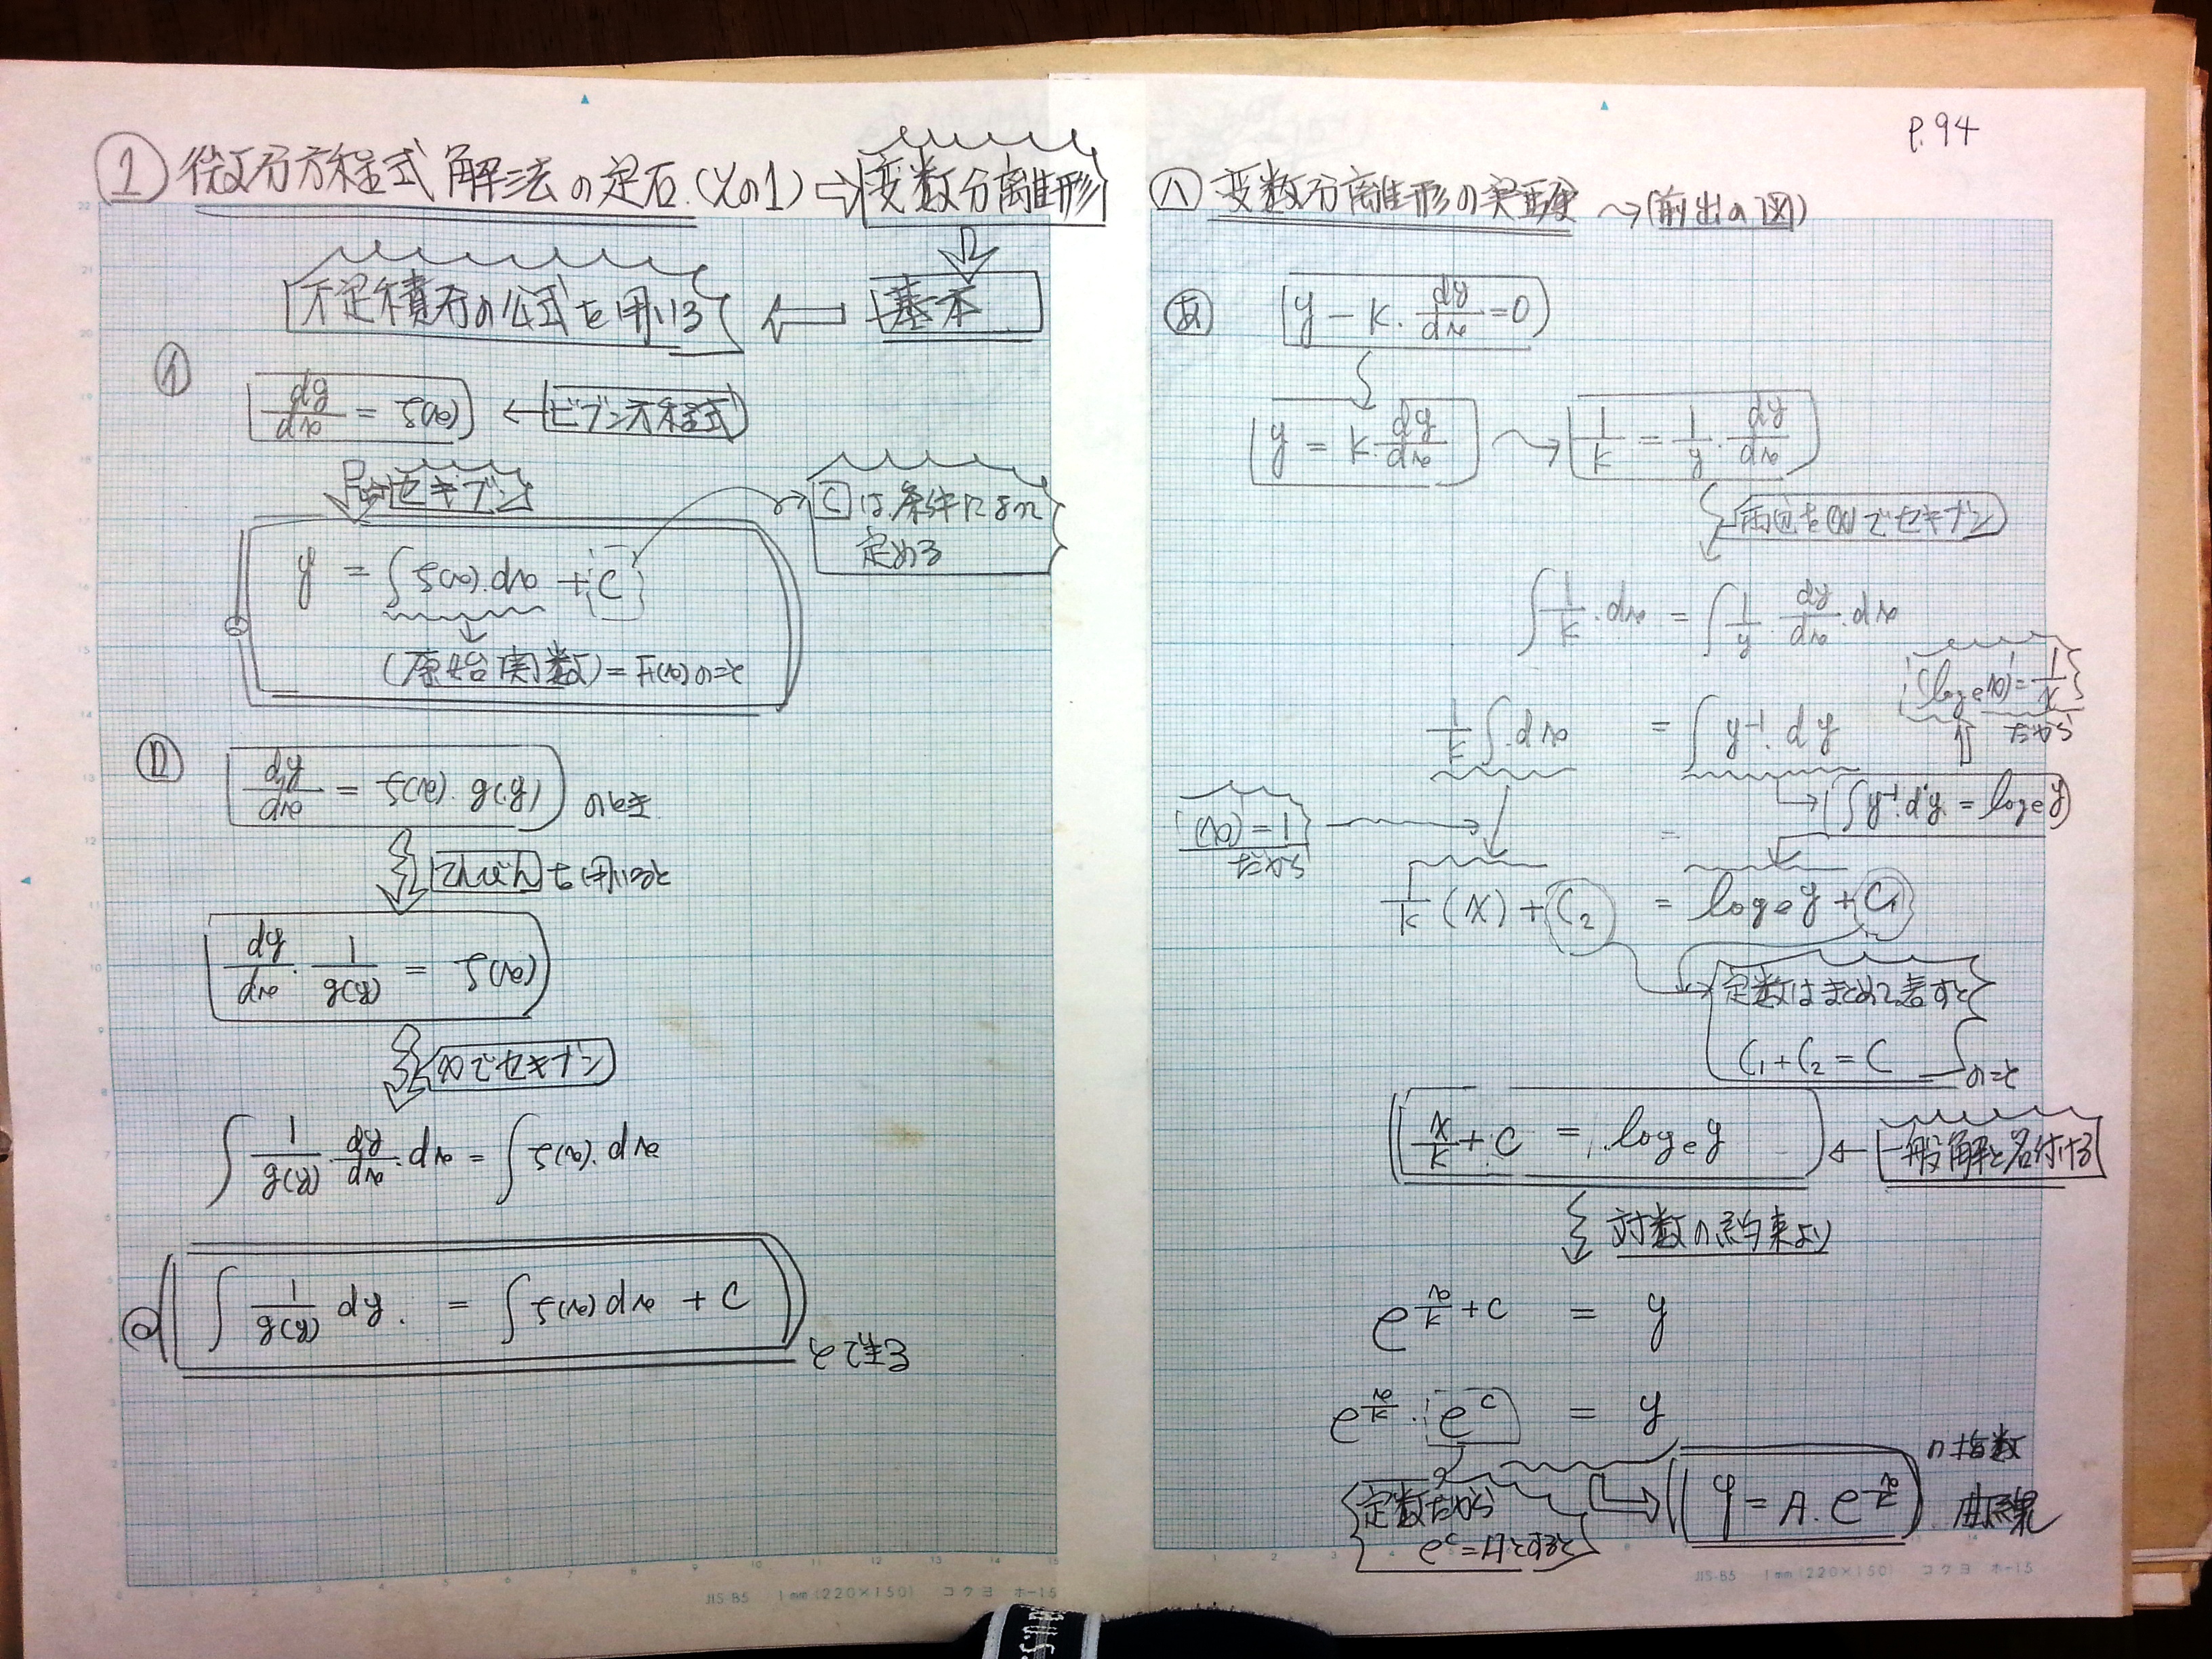 ① 微分方程式 解法の定石.(その1) ⇨ 変数分離形
基本
不定積分の公式を用いる
㋑
dy/dx = f(x) ← ビブン方程式
セキブン
y = ∫f(x).dx + C
Cは条件により
定める
(原始関数) = F(x)のこと
㋺
dy/dx = f(x).g(y) のとき
を用いると
dy/dx · 1/g(y) = f(x)
(x)でセキブン
∫ 1/g(y) · dy/dx · dx = ∫ f(x).dx
∫ 1/g(y) dy. = ∫ f(x) dx + C
とできる
P.94
㋩ 変数分離形の実験 → (前出の図)
あ y − k. dy/dx = 0
y = k. dy/dx → 1/k = 1/y · dy/dx
両辺を(x)でセキブン
∫ 1/k · dx = ∫ 1/y · dy/dx · dx
(log e x)' = 1/x
だから
1/k ∫.dx = ∫ y⁻¹. dy
∫y⁻¹.dy. = log e y
(x)' = 1
だから
1/k (x) + C₂ = log e y + C₁
定数はまとめて表すと
C₁ + C₂ = C のこと
x/k + C = log e y ← 一般解と名付ける
対数の約束より
e^(x/k + C) = y
e^(x/k) · e^C = y
定数だから
e^C = Aとすると
y = A. e^(x/k)
の指数
曲線
JIS-B5 1mm(220×150) コクヨ ホ-15
JIS-B5 1mm(220×150) コクヨ ホ-15